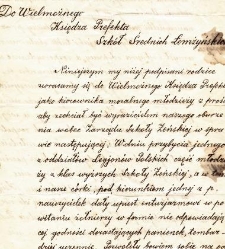 Do Wielmożnego
Księdza Prefekta
Szkół Średnich Łomżyńskich
Niniejszym my niżej podpisani rodzice
zwracamy się do Wielmożnego Księdza Prefekta
jako kierownika moralnego młodzieży z prośbą
aby zechciał być wyrazicielem naszego oburze
nia wobec Zarządu Szkoły Żeńskiej w spra
wie następującej: W dniu przybycia jednego
z oddziałów Legjonów Polskich część młodzie
ży z klas wyższych Szkoły Żeńskiej, a w
i nasze córki, pod kierunkiem jednej z p.
nauczycielek dały upust entuzjazmowi w po
witaniu żołnierzy w formie nie odpowiadają
cej godności dorastających panienek, tem